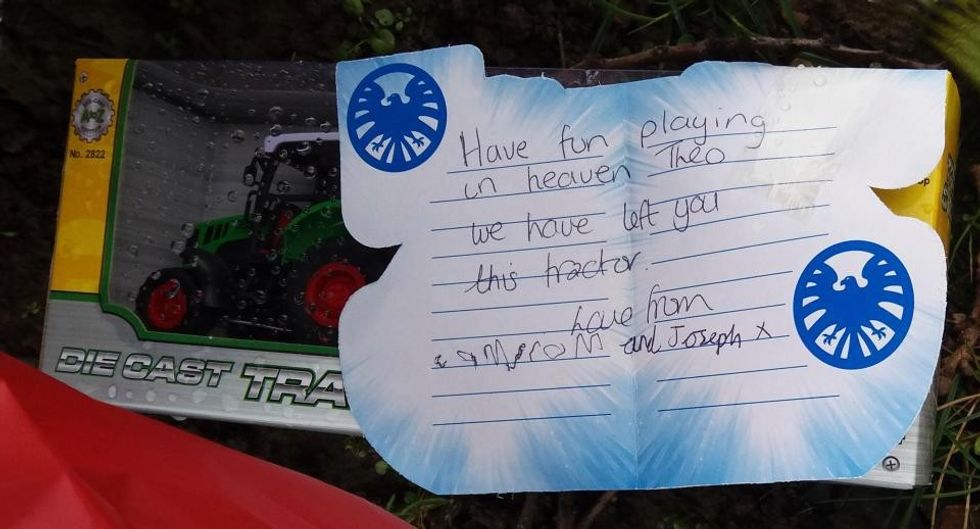 A to Z
No. 2822
Have fun playing
in heaven Theo
we have left you
this tractor.
Love from
and Joseph x
DIE CAST TRA